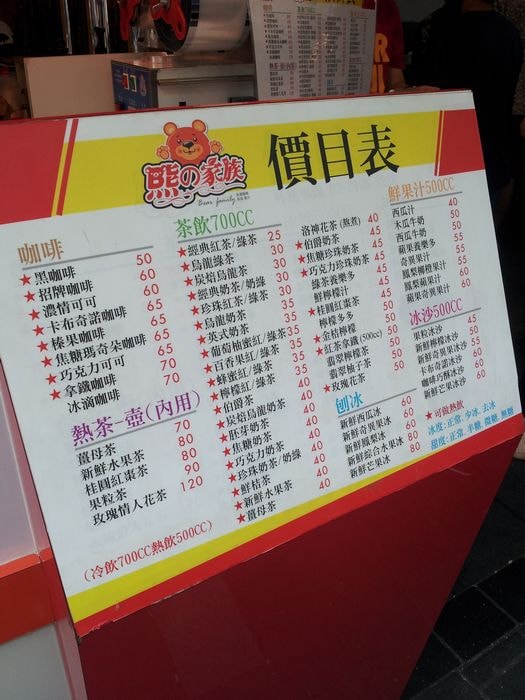 熊の家族
Bear family
價目表
咖啡
★黑咖啡 50
★招牌咖啡 60
★濃情可可 60
★卡布奇諾咖啡 65
★榛果咖啡 65
★焦糖瑪奇朵咖啡 65
★巧克力可可 65
★拿鐵咖啡 70
冰滴咖啡 70
熱茶-壺(內用)
薑母茶 70
新鮮水果茶 80
桂圓紅棗茶 80
果粒茶 90
玫瑰情人花茶 120
(冷飲700CC熱飲500CC)
茶飲700CC
★經典紅茶/綠茶 25
★烏龍綠茶 30
★炭焙烏龍茶 30
★經典奶茶/奶綠 30
★珍珠紅茶/綠茶 30
★烏龍奶茶 35
★英式奶茶 35
★葡萄柚蜜紅/綠茶 35
★百香果紅/綠茶 35
★蜂蜜紅/綠茶 35
★檸檬紅/綠茶 35
★伯爵茶 40
★炭焙烏龍奶茶 40
★胚芽奶茶 40
★焦糖奶茶 40
★巧克力奶茶 40
★珍珠奶茶/奶綠 40
★鮮桔茶 40
★新鮮水果茶 40
★薑母茶 40
洛神花茶(熱煮) 40
★伯爵奶茶 45
★焦糖珍珠奶茶 45
★巧克力珍珠奶茶 45
綠茶養樂多 45
鮮檸檬汁 45
★桂圓紅棗茶 45
檸檬多多 50
★金桔檸檬 50
★紅茶拿鐵(500cc) 50
翡翠檸檬茶 50
翡翠柚子茶 50
★玫瑰花茶 50
刨冰
新鮮西瓜冰 60
新鮮奇異果冰 60
新鮮鳳梨冰 60
新鮮綜合水果冰 80
新鮮芒果冰 80
鮮果汁500CC
西瓜汁 40
木瓜牛奶 50
西瓜牛奶 50
蘋果養樂多 55
奇異果汁 55
鳳梨柳橙果汁 55
鳳梨蘋果汁 60
蘋果奇異果汁 60
冰沙500CC
果粒冰沙 45
新鮮檸檬冰沙 50
新鮮奇異果冰沙 55
卡布奇諾冰沙 60
咖啡巧酥冰沙 60
新鮮芒果冰沙 60
★可做熱飲
冰度:正常、少冰、去冰
甜度:正常、半糖、微糖、無糖